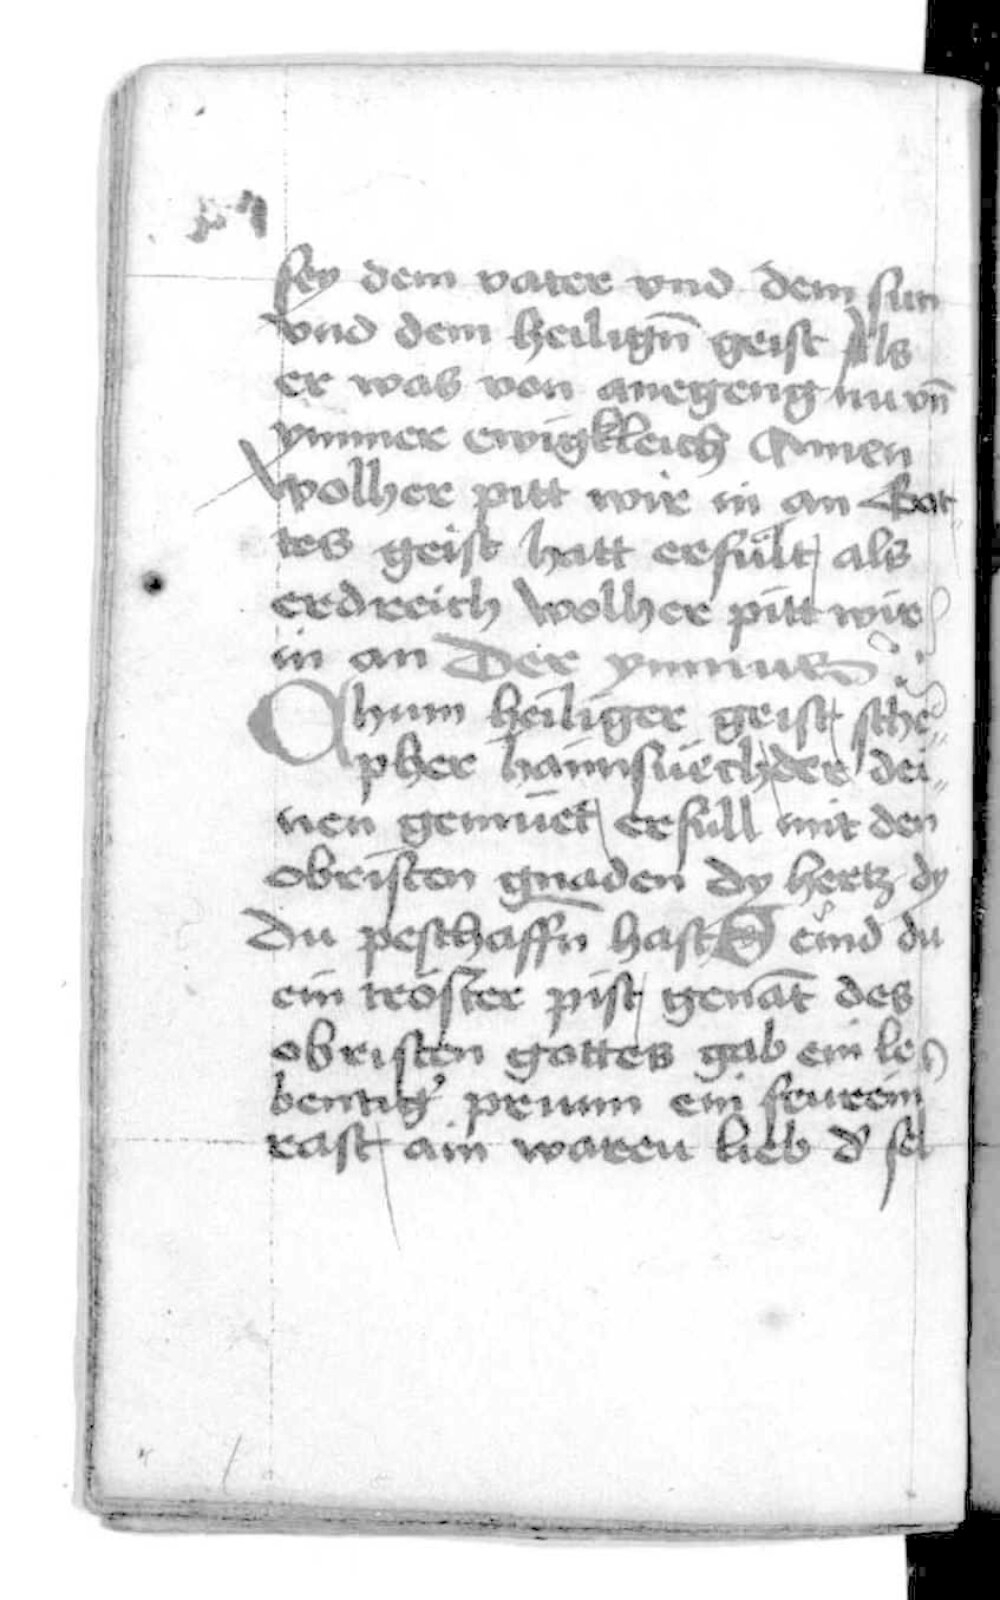 sey dem vater vnd dem sun
vnd dem heilign̄ geist Als
er was von anegeng nu vn̄
ymmer ewigkleich Amen
Wolher pitt wir in an Got
tes geist hatt erfült als
erdreich Wolher pitt wir
in an Der ymnus
Chum heiliger geist sche„
pher haimsuech der dei„
nen gemüet erfull mit den
obristen gnaden dy hertz dy
du peschaffn̄ hast D eind du
ein tröster pist genāt des
obristen gottes gab ein le
bentig' prunn ein feurein
rast ain waren lieb d' sel